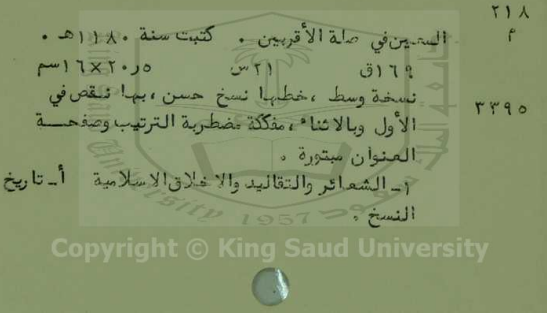 ٢١٨
م
السمين في صلة الأقربين . كتبت سنة ١١٨٠هـ .
١٦٩ق ٢١س ٢٠ر٥×١٦سم
٣٣٩٥
نسخة وسط ،خطها نسخ حسن ،بها نقص في
الأول وبالاثناء ،مفككة مضطربة الترتيب وصفحة
العنوان مبتورة .
١ـ الشعائر والتقاليد والاخلاق الاسلامية أـ تاريخ
النسخ .
1957
University
Copyright © King Saud University